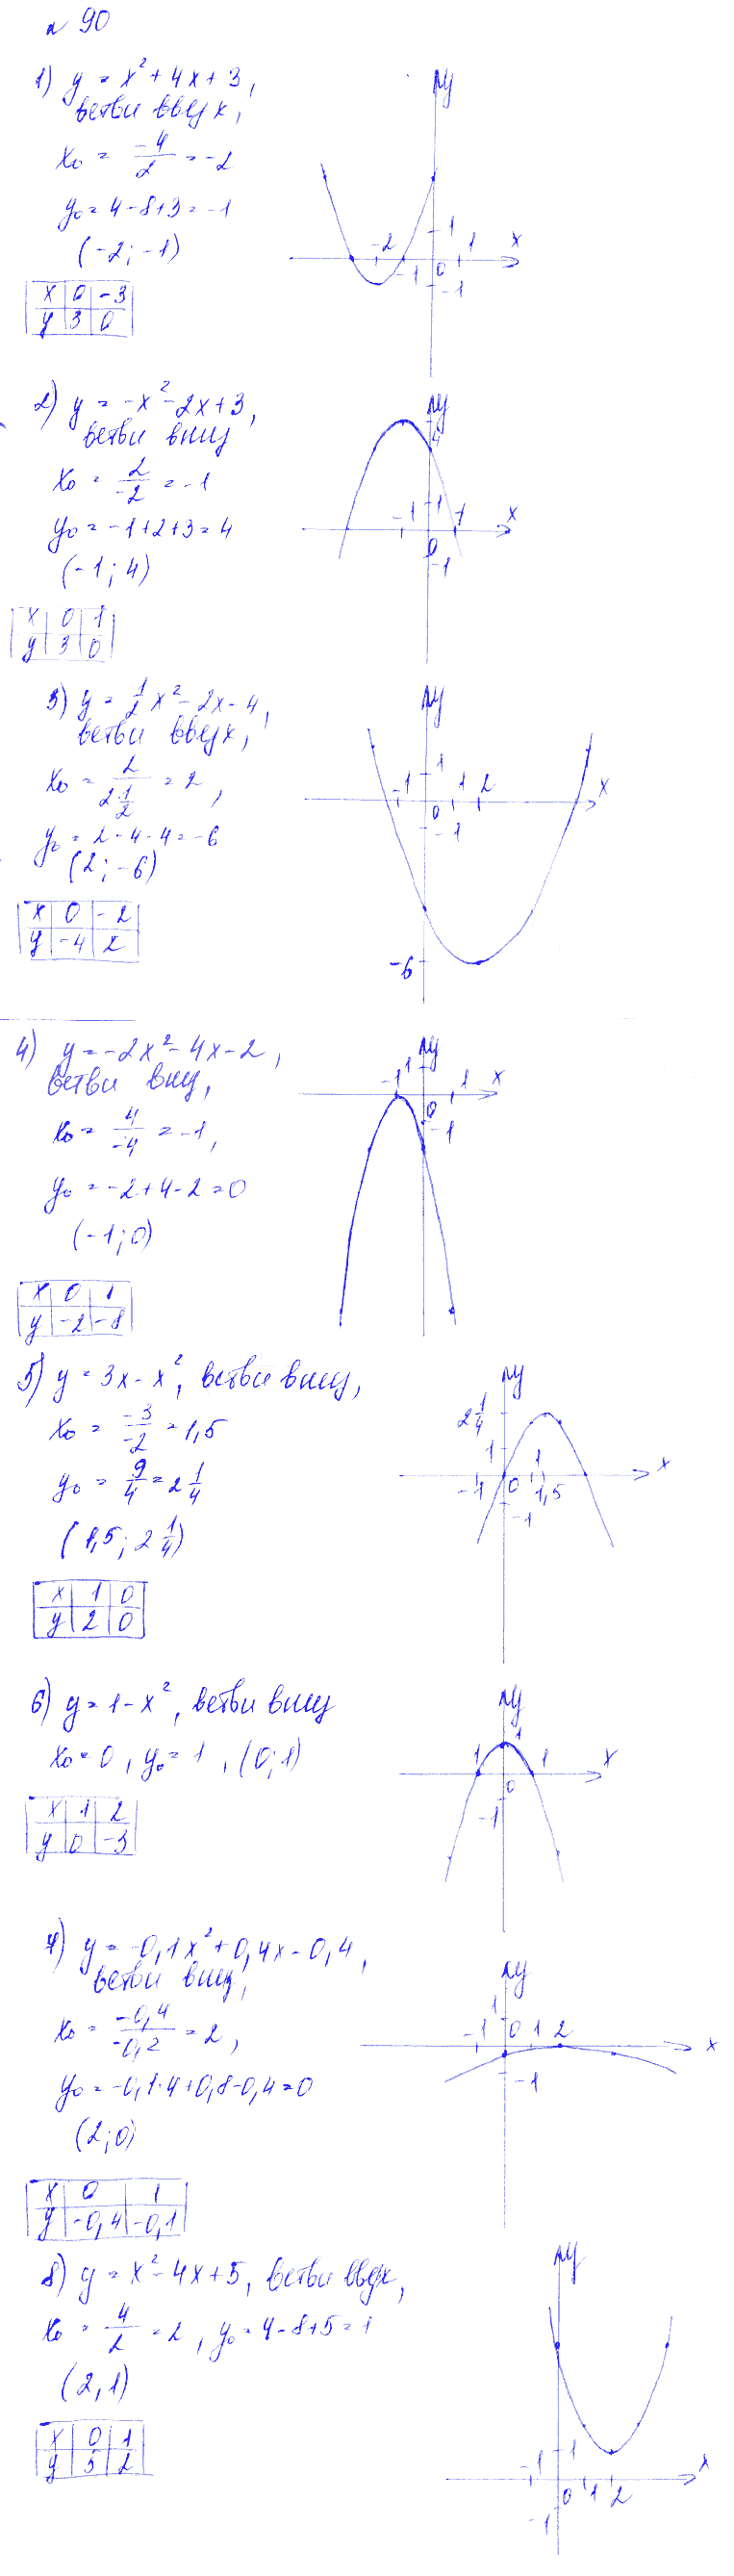 № 90
1) y = x² + 4x + 3,
ветви вверх,
x₀ = -4/2 = -2
y₀ = 4 - 8 + 3 = -1
(-2; -1)
x 0 -3
y 3 0
y
-2 1 1 x
-1 0 -1
2) y = -x² - 2x + 3,
ветви вниз
x₀ = 2/-2 = -1
y₀ = -1 + 2 + 3 = 4
(-1; 4)
x 0 1
y 3 0
y
4
-1 1 1 x
0
-1
3) y = 1/2 x² - 2x - 4,
ветви вверх,
x₀ = 2/(2·1/2) = 2,
y₀ = 2 - 4 - 4 = -6
(2; -6)
x 0 -2
y -4 2
y
-1 1 1 2 x
0
-1
-6
4) y = -2x² - 4x - 2,
ветви вниз,
x₀ = 4/-4 = -1,
y₀ = -2 + 4 - 2 = 0
(-1; 0)
x 0 1
y -2 -8
y
-1 1 1 x
0
-1
5) y = 3x - x², ветви вниз,
x₀ = -3/-2 = 1,5
y₀ = 9/4 = 2 1/4
(1,5; 2 1/4)
x 1 0
y 2 0
y
2 1/4
1 1 x
-1 0 1,5
-1
6) y = 1 - x², ветви вниз
x₀ = 0, y₀ = 1, (0; 1)
x 1 2
y 0 -3
y
1
1 1 x
0
-1
7) y = -0,1x² + 0,4x - 0,4,
ветви вниз,
x₀ = -0,4/-0,2 = 2,
y₀ = -0,1·4 + 0,8 - 0,4 = 0
(2; 0)
x 0 1
y -0,4 -0,1
y
1
-1 0 1 2 x
-1
8) y = x² - 4x + 5, ветви вверх,
x₀ = 4/2 = 2, y₀ = 4 - 8 + 5 = 1
(2, 1)
x 0 1
y 5 2
y
-1 1 x
0 1 2
-1